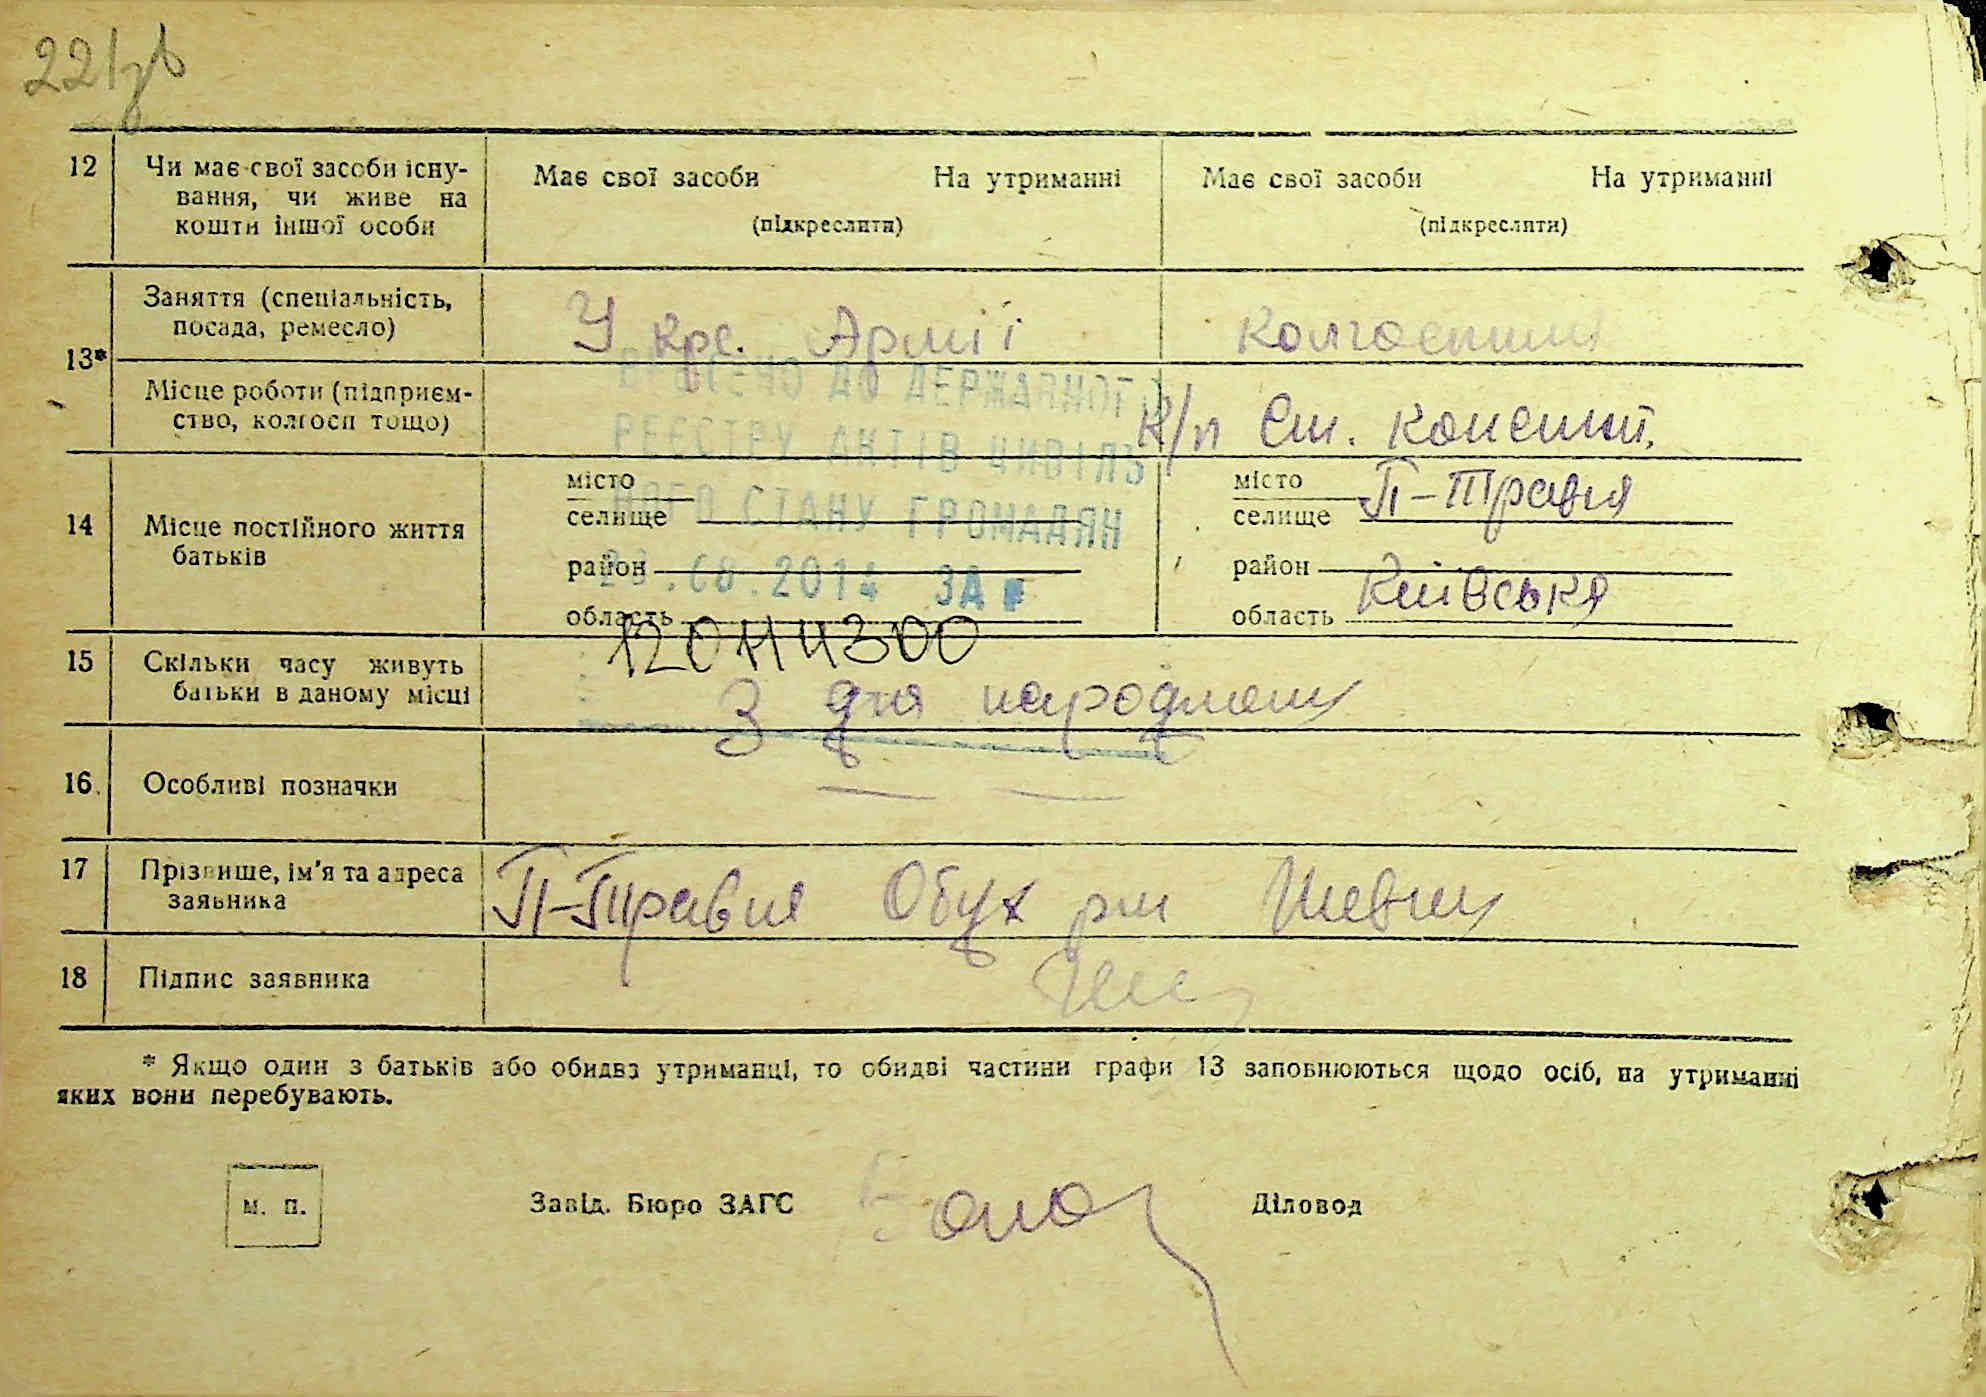 221зв
12 Чи має свої засоби існу-
вання, чи живе на
кошти іншої особи
Має свої засоби На утриманні
(підкреслити)
Має свої засоби На утриманні
(підкреслити)
13*
Заняття (спеціальність,
посада, ремесло)
У крс. Армії
Колгоспниц
Місце роботи (підприєм-
ство, колгосп тощо)
К/п Ст. Констит.
ВНЕСЕНО ДО ДЕРЖАВНОГО
РЕЄСТРУ АКТІВ ЦИВІЛЬ
НОГО СТАНУ ГРОМАДЯН
.08.2014 ЗА №
14 Місце постійного життя
батьків
місто
селище
район
область
місто
селище П-Травня
район
область Київська
120114300
15 Скільки часу живуть
батьки в даному місці
З дня народження
16. Особливі позначки
17 Прізвище, ім'я та адреса
заявника
П-Травня Обух рн Шевчу
18 Підпис заявника
* Якщо один з батьків або обидва утриманці, то обидві частини графи 13 заповнюються щодо осіб, на утриманні
яких вони перебувають.
м. п.
Завід. Бюро ЗАГС
Діловод